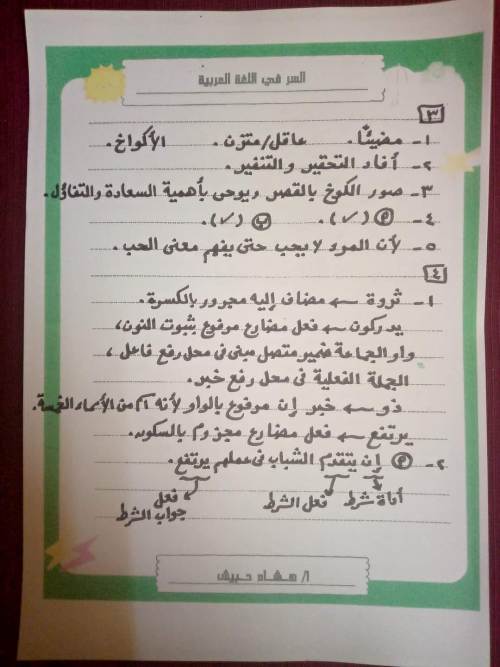 السر في اللغة العربية
٣
١- مضيئًا. عاقل/متزن. الأكواخ.
٢- أفاد التحقير والتنفير.
٣- صور الكوخ بالقصر ويوحى بأهمية السعادة والتفاؤل.
٤- (أ) (✓). (ب) (✓).
٥- لأن المرء لا يجب حتى يفهم معنى الحب.
٤
١- ثروة ← مضاف إليه مجرور بالكسرة.
يدركون ← فعل مضارع مرفوع بثبوت النون،
واو الجماعة ضمير متصل مبنى فى محل رفع فاعل،
الجملة الفعلية فى محل رفع خبر.
ذو ← خبر إن مرفوع بالواو لأنه اسم من الأسماء الخمسة.
يرتفع ← فعل مضارع مجزوم بالسكون.
٢- (أ) إن يتقدم الشباب فى عملهم يرتفع.
أداة شرط فعل الشرط فعل
جواب الشرط
أ/ هشام حبيش